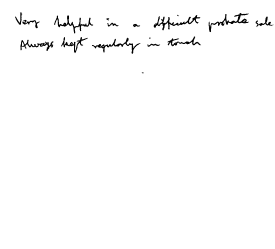 Very helpful in a difficult probate sale
Always kept regularly in touch